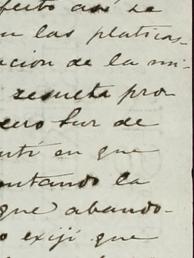 fecto así de
en las platicas
ación de la mi-
resuelta pro
cero Sur de
utí en que
ontando la
que abando-
o exijí que